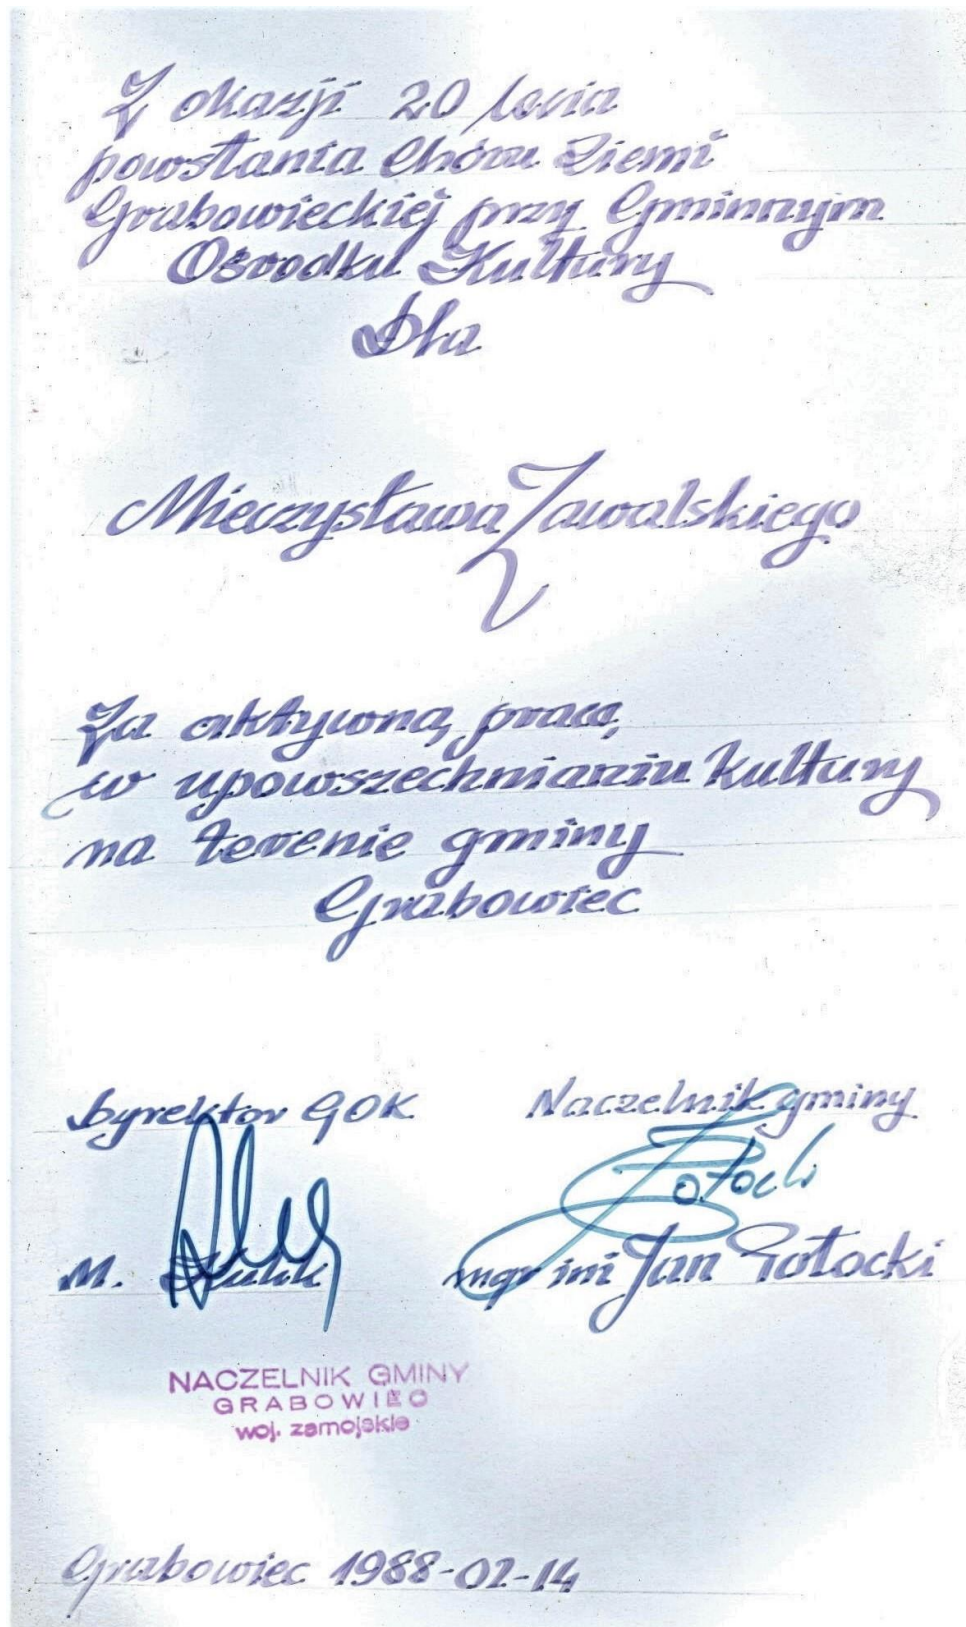 Z okazji 20 lecia
powstania Chóru Ziemi
Grabowieckiej przy Gminnym
Ośrodku Kultury
Dla
Mieczysława Zawalskiego
Za aktywną pracę
w upowszechnianiu kultury
na terenie gminy
Grabowiec
Dyrektor GOK
Naczelnik gminy
M.
mgr inż Jan Potocki
NACZELNIK GMINY
GRABOWIEC
woj. zamojskie
Grabowiec 1988-02-14